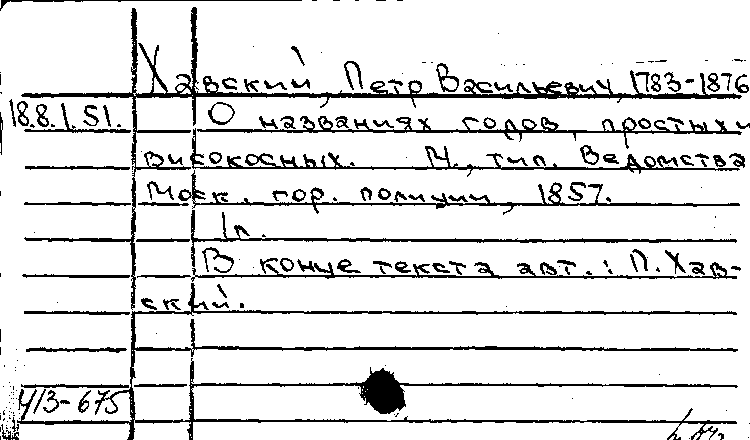 Хавский, Петр Васильевич, 1783-1876
18.8.1.51. О названиях годов, простых и
високосных. М., тип. Ведомства
Моск. гор. полиции, 1857.
1л.
В конце текста авт.: П. Хав-
ский.
413-675